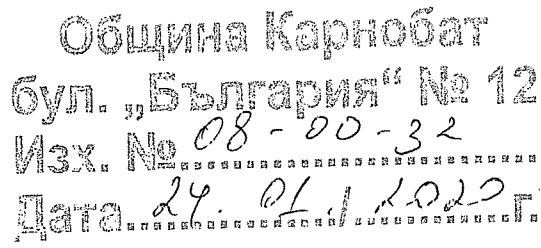 Община Карнобат
бул. „България“ № 12
Изх. № 08-00-32
Дата 24. 01. / 2020 г.